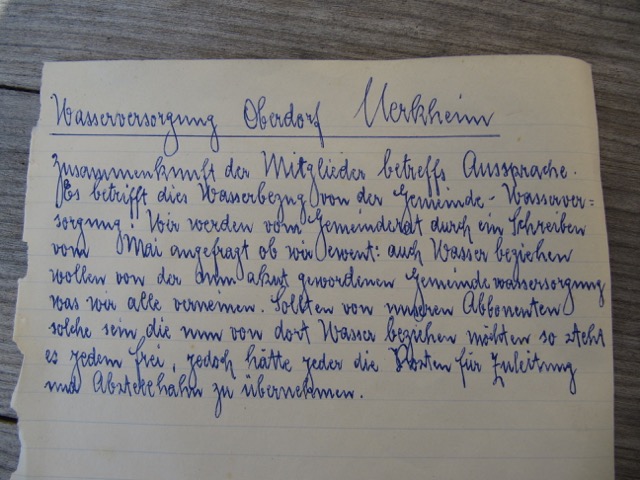 Wasserversorgung Oberdorf Uerkheim
Zusammenkunft der Mitglieder betreffs Aussprache.
Es betrifft dies Wasserbezug von der Gemeinde-Wasserver=
sorgung. Wir werden vom Gemeinderat durch ein Schreiben
vom Mai angefragt ob wir ewent: auch Wasser beziehen
wollen von der nun akut gewordenen Gemeindewassersorgung
was wir alle verneinen. Sollten von unseren Abbonenten
solche sein die nun von dort Wasser beziehen möchten so steht
es jedem frei, jedoch hätte jeder die Kosten für Zuleitung
und Abstellhahn zu übernehmen.